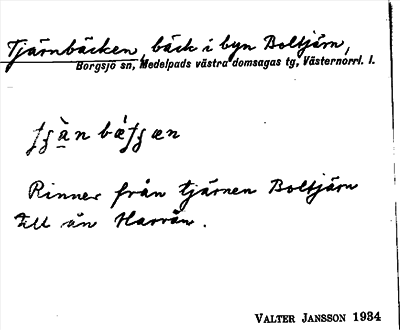 Tjärnbäcken, bäck i byn Boltjärn,
Borgsjö sn, Medelpads västra domsagas tg, Västernorrl. l.
Rinner från tjärnen Boltjärn
till ån Harrån.
VALTER JANSSON 1934